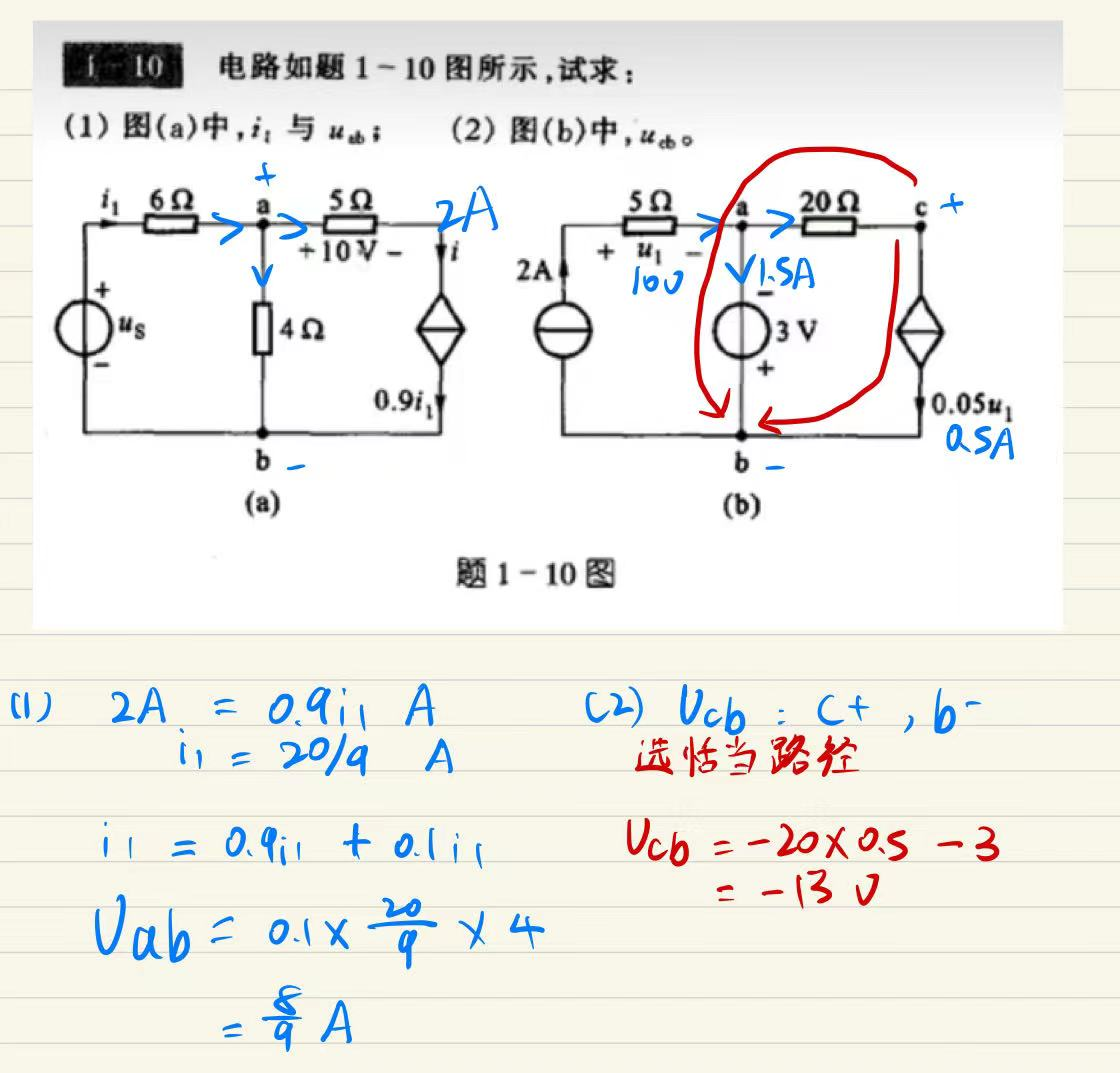 1-10 电路如题 1~10 图所示,试求:
(1) 图(a)中, i₁ 与 uab; (2) 图(b)中, ucb。
i₁ 6Ω + a 5Ω 2A
+10 V - i
+ uS - 4Ω
0.9i₁
b -
(a)
5Ω a 20Ω c +
+ u₁ -
2A 10V 1.5A
- 3 V +
0.05u₁
0.5A
b -
(b)
题 1-10 图
(1) 2A = 0.9i₁ A
i₁ = 20/9 A
i₁ = 0.9i₁ + 0.1i₁
Uab = 0.1 × 20/9 × 4
= 8/9 A
(2) Ucb : C+ , b-
选恰当路径
Ucb = -20×0.5 -3
= -13 V